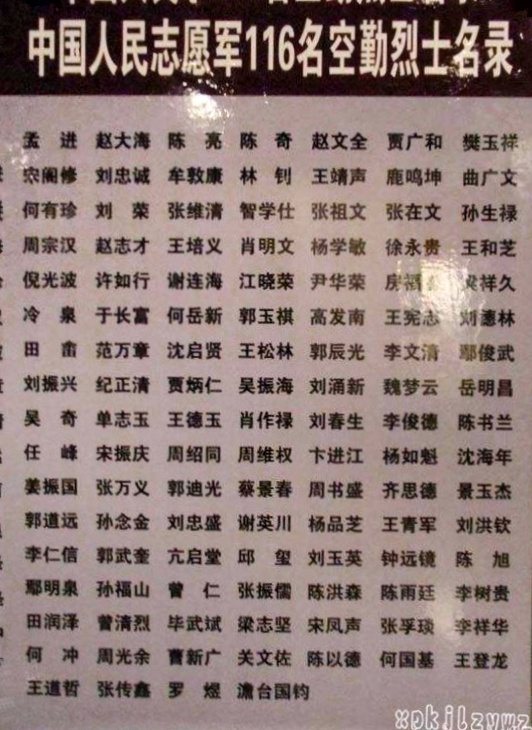 中国人民志愿军116名空勤烈士名录
孟 进 赵大海 陈 亮 陈 奇 赵文全 贾广和 樊玉祥
宗阁修 刘忠诚 牟敦康 林 钊 王靖声 鹿鸣坤 曲广文
何有珍 刘 荣 张维清 智学仕 张祖文 张在文 孙生禄
周宗汉 赵志才 王培义 肖明文 杨学敏 徐永贵 王和芝
倪光波 许如行 谢连海 江晓荣 尹华荣 房 祥久
冷 泉 于长富 何岳新 郭玉祺 高发南 王宪志 刘德林
田 畬 范万章 沈启贤 王松林 郭辰光 李文清 鄢俊武
刘振兴 纪正清 贾炳仁 吴振海 刘涌新 魏梦云 岳明昌
吴 奇 单志玉 王德玉 肖作禄 刘春生 李俊德 陈书兰
任 峰 宋振庆 周绍同 周维权 卞进江 杨如魁 沈海年
姜振国 张万义 郭迪光 蔡景春 周书盛 齐思德 景玉杰
郭道远 孙念金 刘忠盛 谢英川 杨品芝 王青军 刘洪钦
李仁信 郭武奎 亢启堂 邱 玺 刘玉英 钟远镜 陈 旭
鄢明泉 孙福山 曾 仁 张振儒 陈洪森 陈雨廷 李树贵
田润泽 曾清烈 毕武斌 梁志坚 宋凤声 张孚琰 李祥华
何 冲 周光余 曹新广 关文佐 陈以德 何国基 王登龙
王道哲 张传鑫 罗 煜 澹台国钧
xpkjlzywz